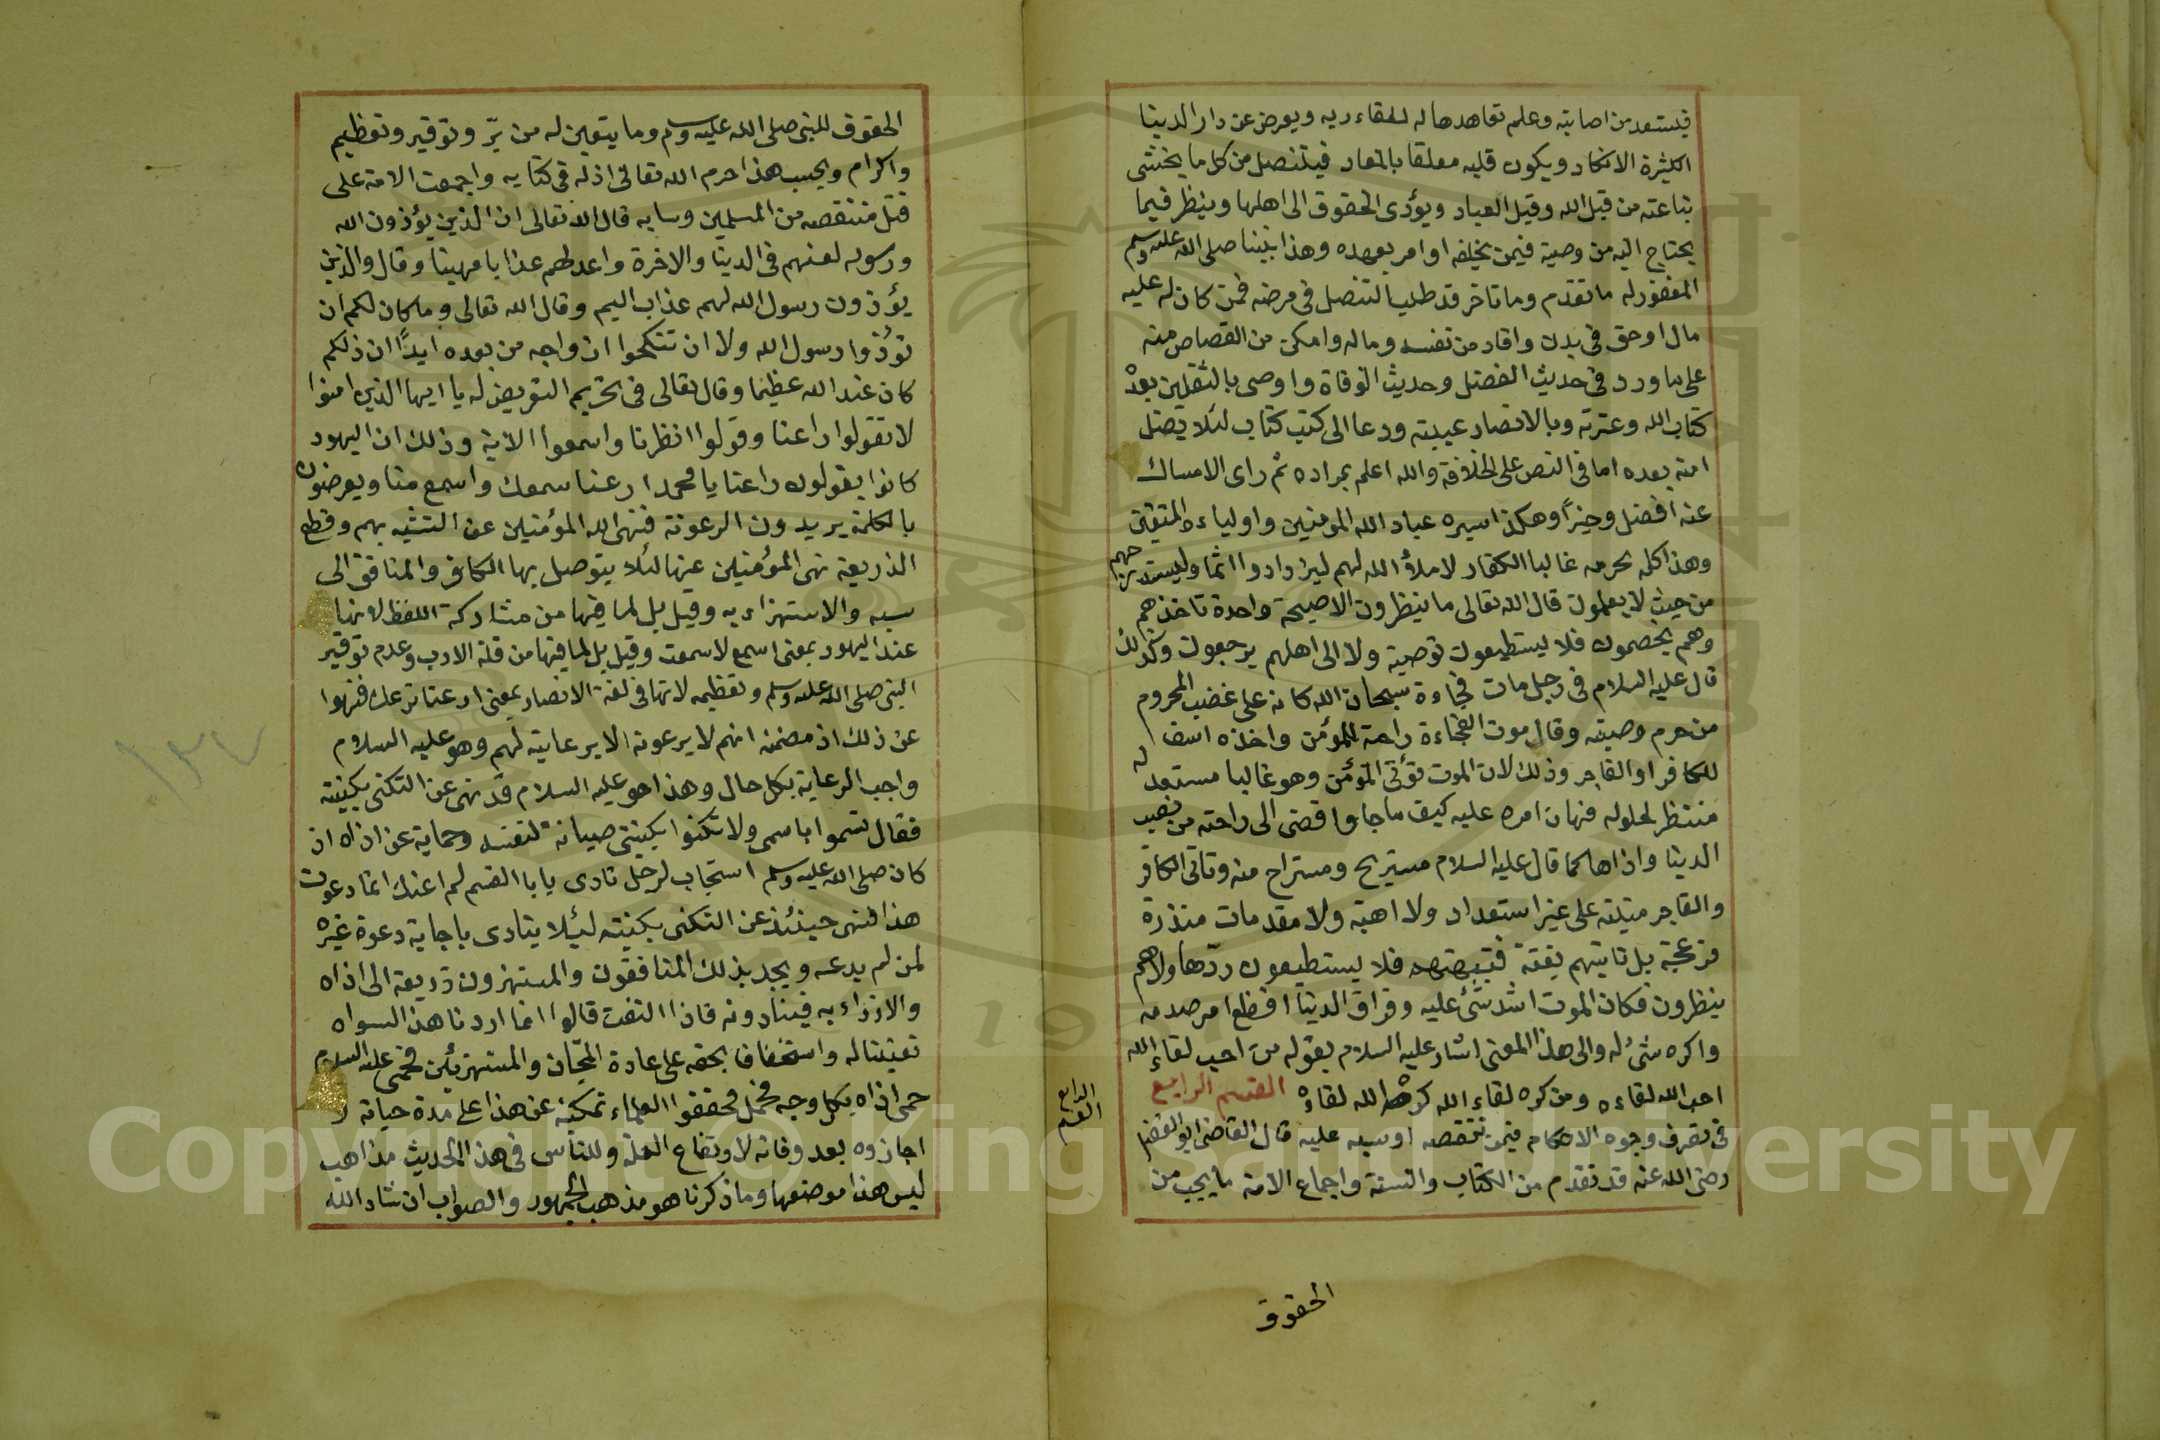 فيستعد من اصابته وعلم تعاهدها له للقاء ربه ويعرض عن دار الدنيا
الكثيرة الانكاد ويكون قلبه معلقا بالمعاد فيتنصل من كل ما يخشى
تباعته من قبل الله وقبل العباد ويؤدى الحقوق الى اهلها وينظر فيما
يحتاج اليه من وصية فيمن يخلفه او امر يعهده وهذا نبينا صلى الله عليه وسلم
المغفور له ما تقدم وما تاخر قد طلب التنصل فى مرضه فمن كان له عليه
مال او حق فى بدن واقاد من نفسه وماله وامكن من القصاص منه
على ما ورد فى حديث الفضل وحديث الوفاة واوصى بالثقلين بعده
كتاب الله وعترته وبالانصار عيبته ودعا الى كتب كتاب لئلا يضل
امته بعده اما فى النص على الخلافة والله اعلم بمراده ثم راى الامساك
عنه افضل وخيرا وهكذا سيره عباد الله المؤمنين واولياءه المتقين
وهذا كله يحرمه غالبا الكفار لاملاء الله لهم ليزدادوا اثما وليستدرجهم
من حيث لا يعلمون قال الله تعالى ما ينظرون الا صيحة واحدة تاخذهم
وهم يخصمون فلا يستطيعون توصية ولا الى اهلهم يرجعون وكذلك
قال عليه السلام فى رجل مات فجاءة سبحان الله كانه على غضب المحروم
من حرم وصيته وقال موت الفجاءة راحة للمؤمن واخذه اسف
للكافر او الفاجر وذلك لان الموت تؤتى المؤمن وهو غالبا مستعد له
منتظر لحلوله فهان امره عليه كيف ما جا وافضى الى راحته من نصب
الدنيا واذاها كما قال عليه السلام مستريح ومستراح منه وتاتى الكافر
والفاجر ميتته على غير استعداد ولا اهبة ولا مقدمات منذرة
مزعجة بل تاتيهم بغتة فتبهتهم فلا يستطيعون ردها ولا هم
ينظرون فكان الموت اشد شئ عليه وفراق الدنيا افظع امر صدمه
واكره شئ له والى هذا المعنى اشار عليه السلام بقوله من احب لقاء الله
احب الله لقاءه ومن كره لقاء الله كره الله لقاءه القسم الرابع
فى تصرف وجوه الاحكام فيمن تنقصه او سبه عليه قال القاضى ابو الفضل
رضى الله عنه قد تقدم من الكتاب والسنة واجماع الامة ما يجب من
الحقوق
الرابع
القسم
الحقوق للنبى صلى الله عليه وسلم وما يتعين له من بر وتوقير وتعظيم
واكرام وبحسب هذا حرم الله تعالى اذاه فى كتابه واجمعت الامة على
قتل متنقصه من المسلمين وسابه قال الله تعالى ان الذين يؤذون الله
ورسوله لعنهم فى الدنيا والاخرة واعد لهم عذابا مهينا وقال والذين
يؤذون رسول الله لهم عذاب اليم وقال الله تعالى وما كان لكم ان
تؤذوا رسول الله ولا ان تنكحوا ازواجه من بعده ابدا ان ذلكم
كان عند الله عظيما وقال تعالى فى تحريم التعريض له يا ايها الذين امنوا
لا تقولوا راعنا وقولوا انظرنا واسمعوا الاية وذلك ان اليهود
كانوا يقولون راعنا يا محمد ارعنا سمعك واسمع منا ويعرضون
بالكلمة يريدون الرعونة فنهى الله المؤمنين عن التشبه بهم وقطع
الذريعة نهى المؤمنين عنها لئلا يتوصل بها الكافر والمنافق الى
سبه والاستهزاء به وقيل بل لما فيها من مشاركة اللفظ لانها
عند اليهود بمعنى اسمع لا سمعت وقيل بل لما فيها من قلة الادب وعدم توقير
النبى صلى الله عليه وسلم وتعظيمه لانها فى لغة الانصار بمعنى ارعنا نرعك فنهوا
عن ذلك اذ مضمنه انهم لا يرعونه الا برعايته لهم وهو عليه السلام
واجب الرعاية بكل حال وهذا هو عليه السلام قد نهى عن التكنى بكنيته
فقال تسموا باسمى ولا تكنوا بكنيتى صيانة لنفسه وحماية عن اذاه ان
كان صلى الله عليه وسلم استجاب لرجل نادى يا با القسم لم اعنك انما دعوت
هذا فنهى حينئذ عن التكنى بكنيته لئلا يتاذى باجابة دعوة غيره
لمن لم يدعه ويجد بذلك المنافقون والمستهزون ذريعة الى اذاه
والازراء به فينادونه فاذا التفت قالوا انما اردنا هذا لسواه
تعنيتا له واستخفافا بحقه على عادة المجان والمستهزئين فحمى عليه السلام
حمى اذاه بكل وجه فحمل محققوا العلماء تمكينه عن هذا على مدة حياته و
اجازوه بعد وفاته لارتفاع العلة وللناس فى هذا الحديث مذاهب
ليس هذا موضعها وما ذكرنا هو مذهب الجمهور والصواب ان شاء الله
١٣٧
Copyright © King Saud University
1957